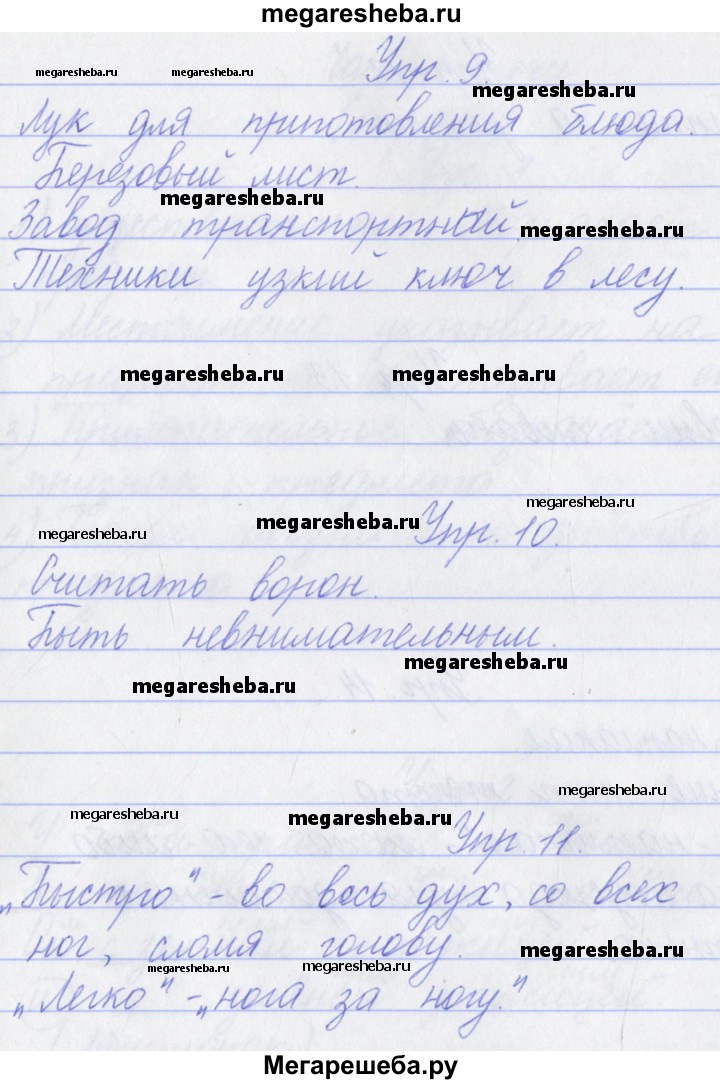 megaresheba.ru
megaresheba.ru megaresheba.ru Упр. 9.
megaresheba.ru
Лук для приготовления блюда.
Березовый лист.
megaresheba.ru
Завод транспортный.
megaresheba.ru
Техники узкий ключ в лесу.
megaresheba.ru megaresheba.ru
megaresheba.ru
megaresheba.ru megaresheba.ru Упр. 10.
Считать ворон.
Быть невнимательным.
megaresheba.ru
megaresheba.ru
megaresheba.ru
megaresheba.ru megaresheba.ru
Упр. 11.
„Быстро" - во весь дух, со всех
ног, сломя голову.
megaresheba.ru
megaresheba.ru megaresheba.ru
„Легко" - „нога за ногу."
Мегарешеба.ру